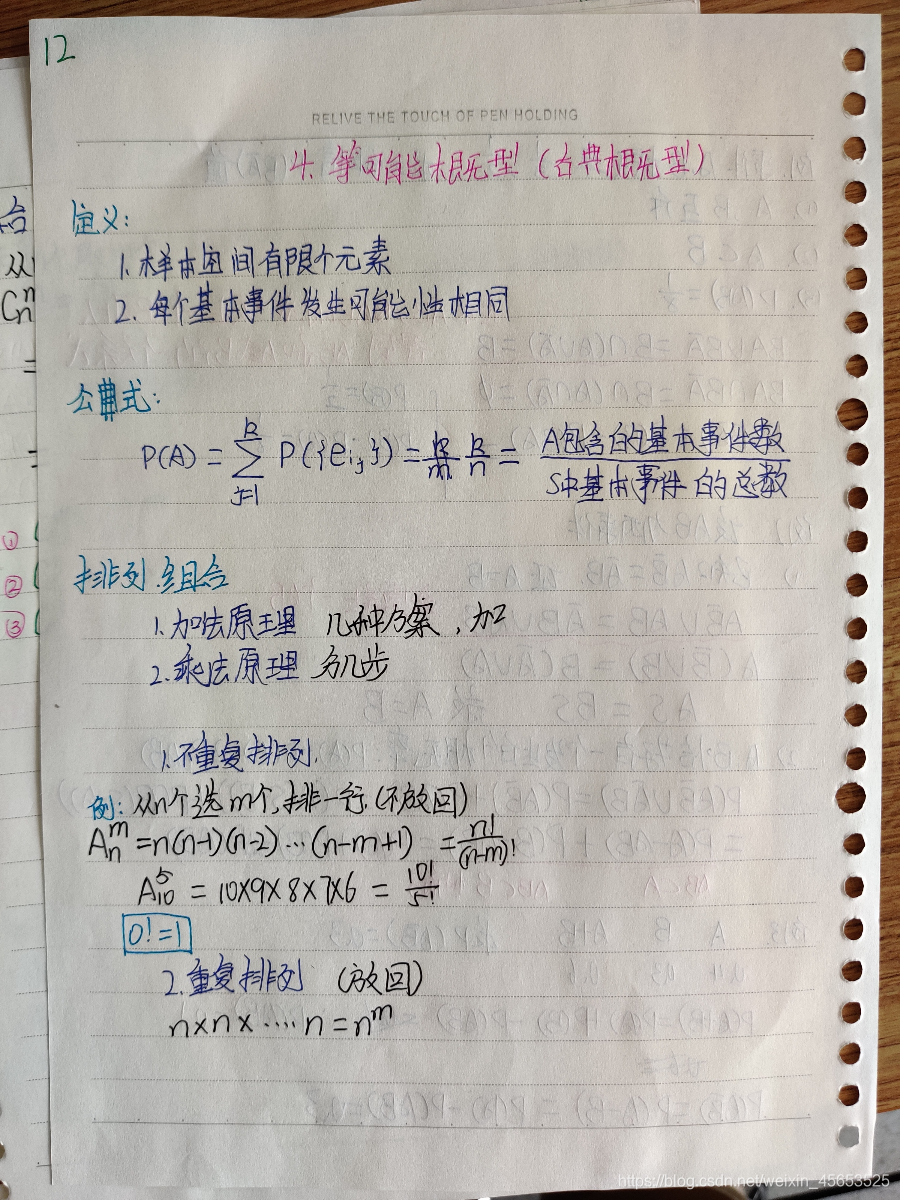 12
RELIVE THE TOUCH OF PEN HOLDING
4. 等可能概型（古典概型）
定义:
1. 样本空间有限个元素
2. 每个基本事件发生可能性相同
公式:
P(A) = ∑_{j=1}^{k} P({e_{i_j}}) = k/n = A包含的基本事件数/S中基本事件的总数
排列.组合
1. 加法原理 几种方案,加
2. 乘法原理 分几步
1. 不重复排列.
例: 从n个选m个,排一行(不放回)
A_n^m = n(n-1)(n-2)…(n-m+1) = n!/(n-m)!
A_{10}^5 = 10×9×8×7×6 = 10!/5!
0!=1
2. 重复排列 (放回)
n×n×····n = n^m
合
从
C_n^m
=
=
①
②
③
https://blog.csdn.net/weixin_45653525